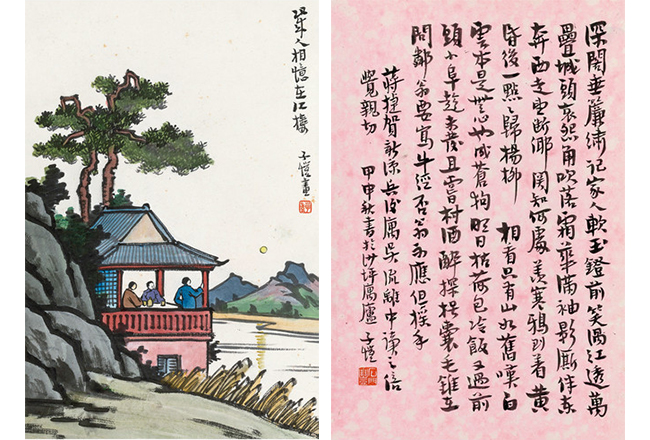 幾人相憶在江樓
子愷畫
深閣垂簾繡記家人軟玉鐙前笑渦紅透萬
疊城頭哀怨角吹落霜華滿袖影厮伴東
奔西走望斷鄉關知何處羨寒鴉到着黄
昏後一點〻歸楊柳 相看只有山如舊嘆白
雲本是無心也成蒼狗明日枯荷包冷飯又過前
頭小阜趁未發且嘗村酒醉探枵囊毛錐在
問鄰翁要寫牛經否翁不應但摇手
蔣捷賀新涼兵後寓吳流離中讀之倍
覺親切 甲申秋書於沙坪寓廬 子愷